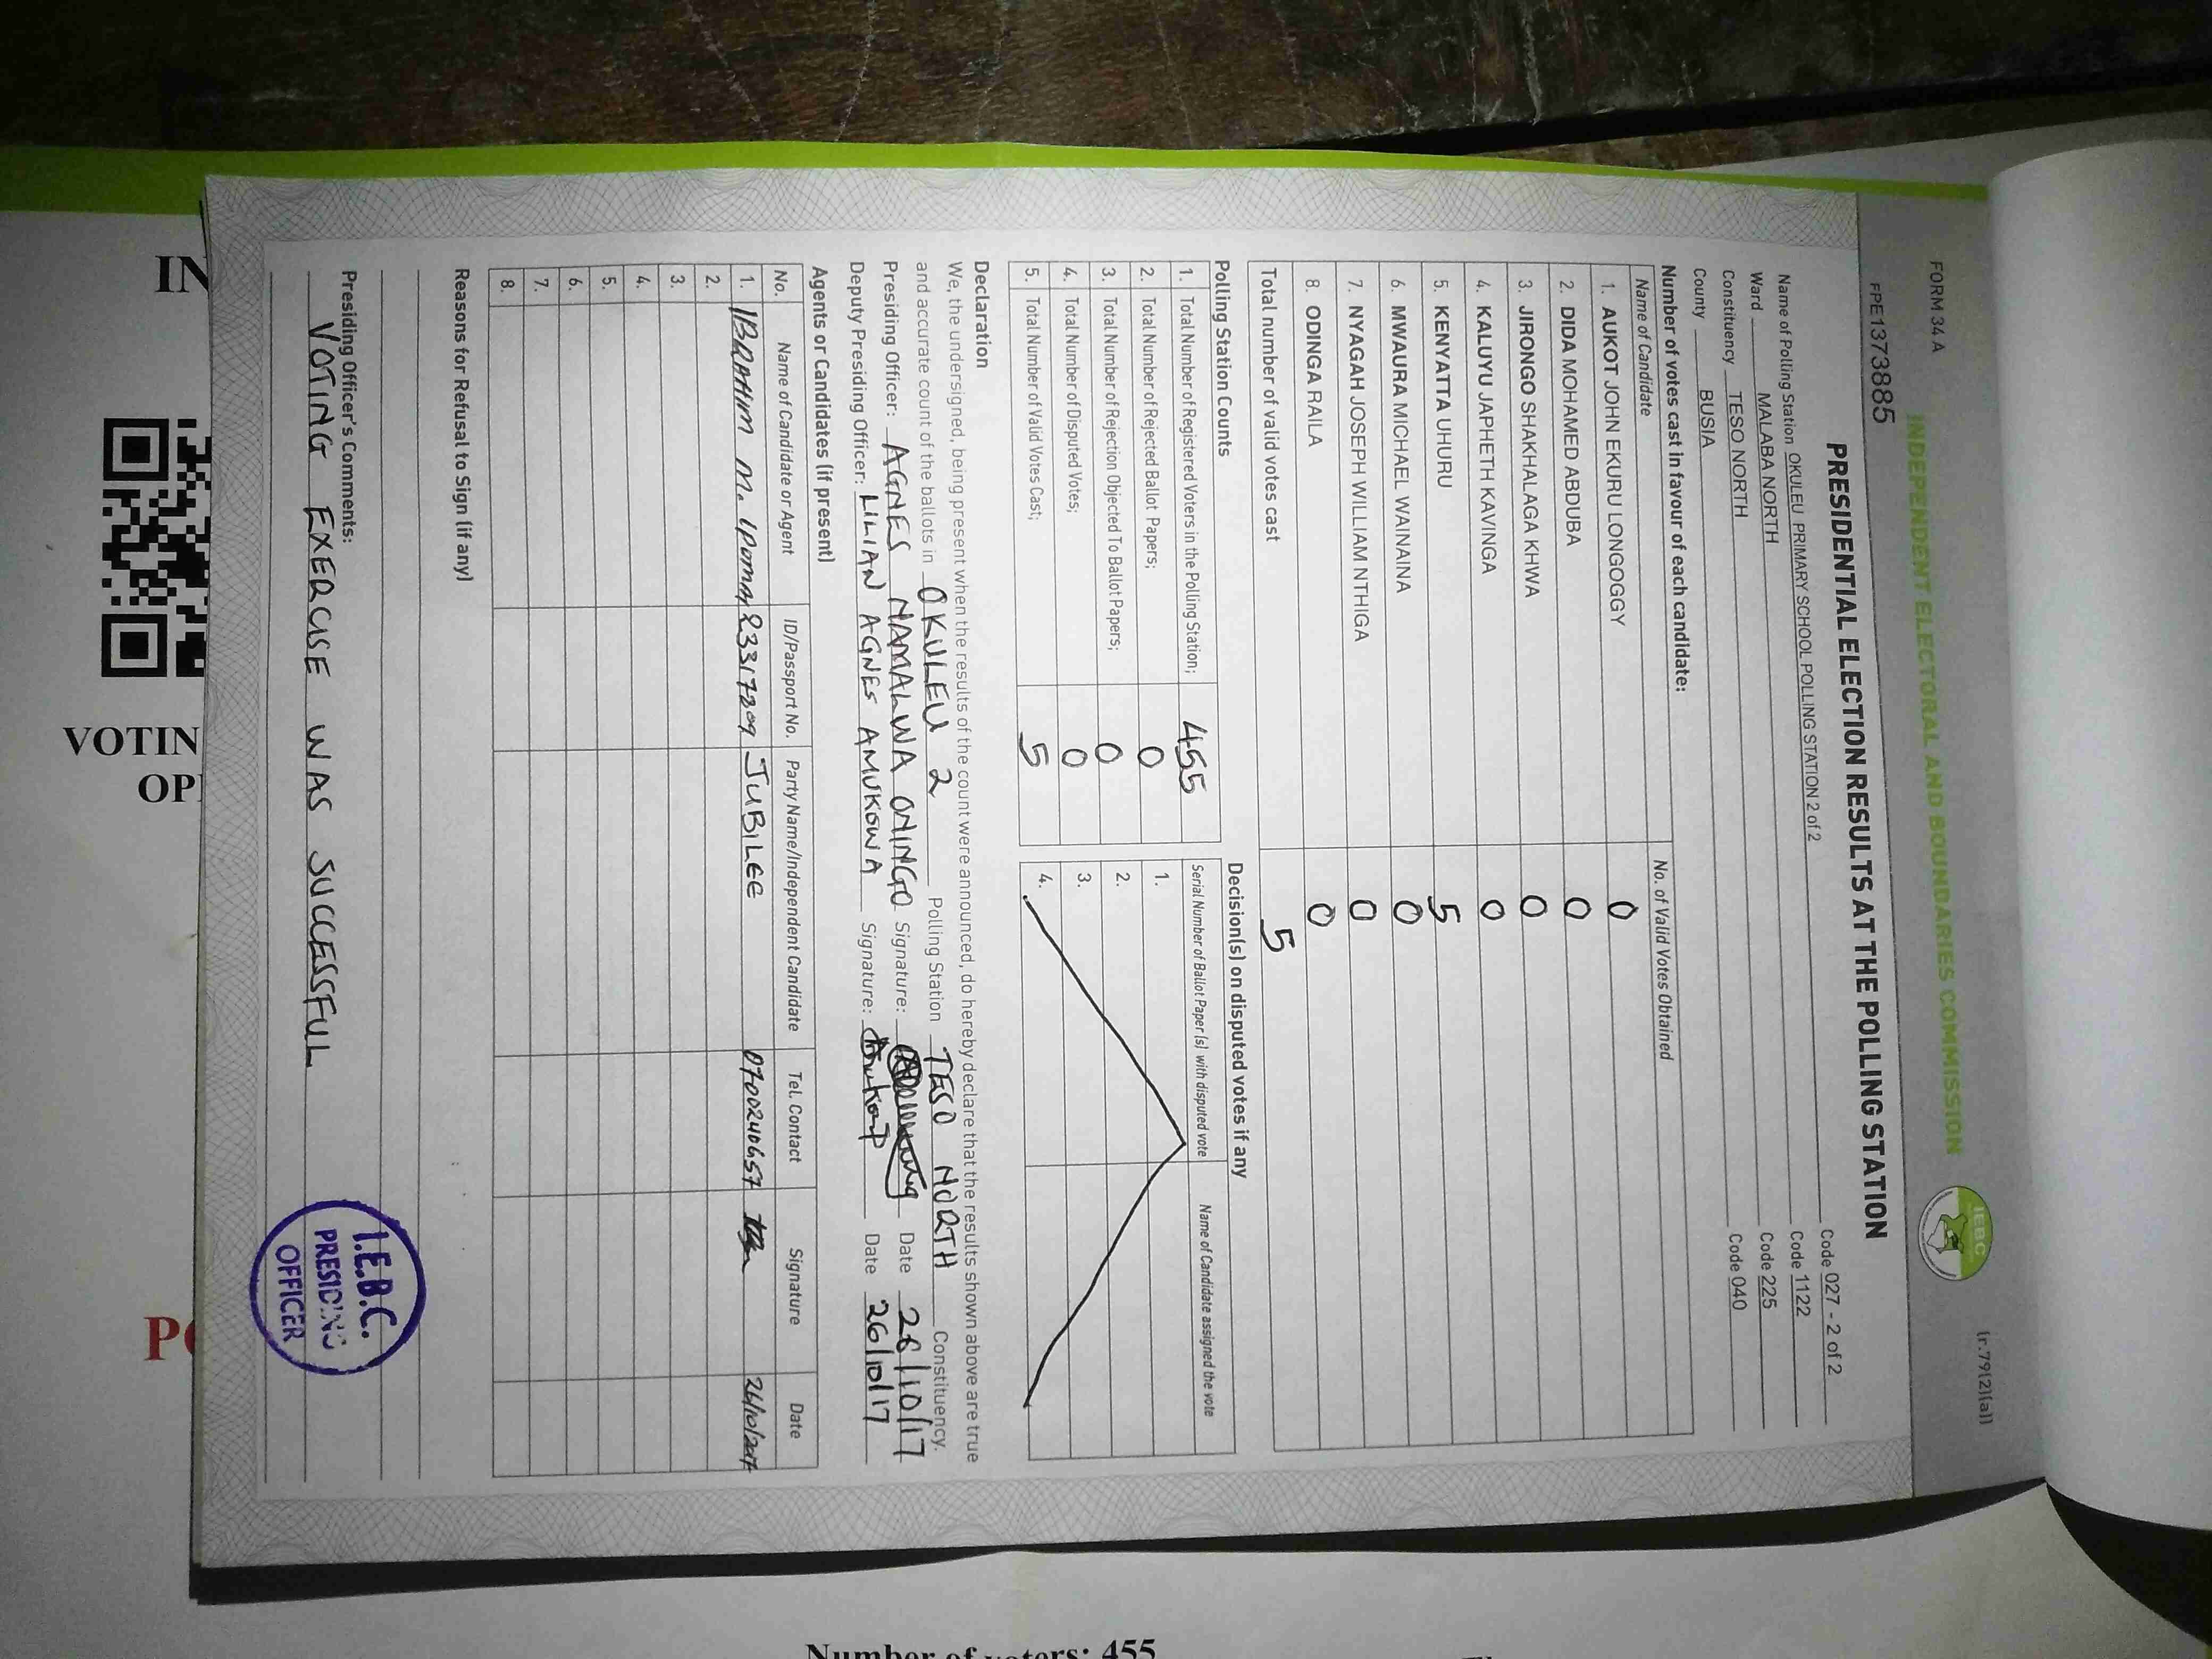 FORM 34 A
(r.79(2)(a))
INDEPENDENT ELECTORAL AND BOUNDARIES COMMISSION
IEBC
FPE1373885
PRESIDENTIAL ELECTION RESULTS AT THE POLLING STATION
Name of Polling Station OKULEU PRIMARY SCHOOL POLLING STATION 2 of 2 Code 027 - 2 of 2
Ward MALABA NORTH Code 1122
Constituency TESO NORTH Code 225
County BUSIA Code 040
Number of votes cast in favour of each candidate:
Name of Candidate No. of Valid Votes Obtained
1. AUKOT JOHN EKURU LONGOGGY 0
2. DIDA MOHAMED ABDUBA 0
3. JIRONGO SHAKHALAGA KHWA 0
4. KALUYU JAPHETH KAVINGA 0
5. KENYATTA UHURU 5
6. MWAURA MICHAEL WAINAINA 0
7. NYAGAH JOSEPH WILLIAM NTHIGA 0
8. ODINGA RAILA 0
Total number of valid votes cast 5
Polling Station Counts
1. Total Number of Registered Voters in the Polling Station; 455
2. Total Number of Rejected Ballot Papers; 0
3. Total Number of Rejection Objected To Ballot Papers; 0
4. Total Number of Disputed Votes; 0
5. Total Number of Valid Votes Cast; 5
Decision(s) on disputed votes if any
Serial Number of Ballot Paper (s) with disputed vote Name of Candidate assigned the vote
1.
2.
3.
4.
Declaration
We, the undersigned, being present when the results of the count were announced, do hereby declare that the results shown above are true
and accurate count of the ballots in OKULEU 2 Polling Station TESO NORTH Constituency.
Presiding Officer: AGNES NAMALWA ONINGO Signature: Date 26/10/17
Deputy Presiding Officer: LILIAN AGNES AMUKOWA Signature: Date 26/10/17
Agents or Candidates (if present)
No. Name of Candidate or Agent ID/Passport No. Party Name/Independent Candidate Tel. Contact Signature Date
1. IBRAHIM M. 23317209 JUBILEE 0700240657 26/10/2017
2.
3.
4.
5.
6.
7.
8.
Reasons for Refusal to Sign (if any)
Presiding Officer's Comments:
VOTING EXERCISE WAS SUCCESSFUL
I.E.B.C.
PRESIDING
OFFICER
IN
VOTIN
OP
PO
Number of voters: 455